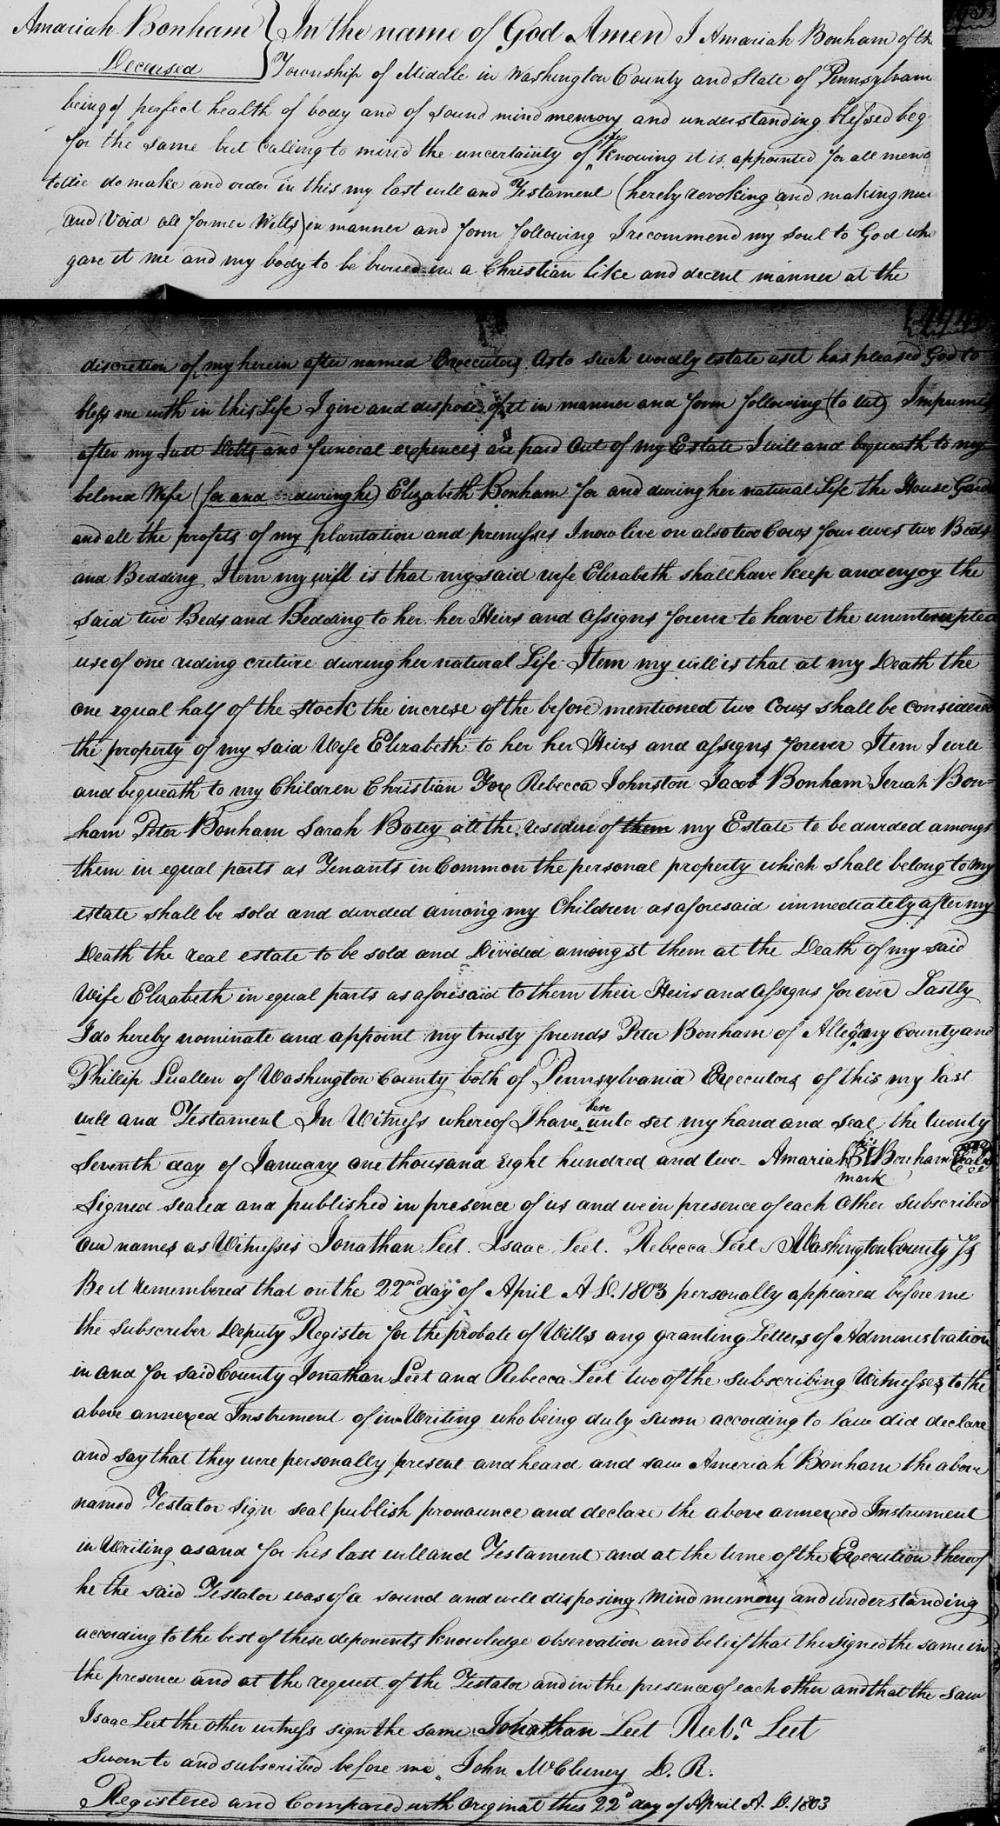 Amariah Bonham
Deceased
In the name of God Amen I Amariah Bonham of th
Township of Middle in Washington County and State of Pennsylvani
being of perfect health of body and of sound mind memory and understanding blessed beg
for the same but Calling to mind the uncertainty of Knowing it is appointed for all men
to die do make and order in this my last will and Testament (hereby revoking and making nu
and Void all former Wills) in manner and form following I recommend my soul to God who
gave it me and my body to be buried in a Christian like and decent manner at the
discretion of my herein after named Executors As to such wordly estate as it has pleased God to
bless me with in this Life I give and dispose of it in manner and form following (to wit)
after my Just Debts and funeral expences are paid Out of my Estate I will and bequeath to my
beloved Wife (for and during he) Elizabeth Bonham for and during her natural Life the House Gard
and all the profits of my plantation and premisses I now live on also two Cows four ewes two Beds
and Bedding Item my will is that my said wife Elizabeth shall have keep and enjoy the
said two Beds and Bedding to her her Heirs and Assigns forever to have the uninterrupted
use of one riding criture during her natural Life Item my will is that at my Death the
one equal half of the Stock the increse of the before mentioned two Cows shall be considered
the property of my said Wife Elizabeth to her her Heirs and assigns forever Item I will
and bequeath to my Children Christian Fox Rebecca Johnston Jacob Bonham Jeriah Bon=
ham Peter Bonham Sarah all the residue of them my Estate to be divided amongst
them in equal parts as Tenants in Common the personal property which shall belong to my
estate shall be sold and divided among my Children as aforesaid immediately after my
Death the real estate to be sold and Divided amongst them at the Death of my said
Wife Elizabeth in equal parts as aforesaid to them their Heirs and Assigns for ever Lastly
I do hereby nominate and appoint my trusty friends Peter Bonham of Allegany County and
Phillip Luallen of Washington County both of Pennsylvania Executors of this my Last
will and Testament In Witness whereof I have here unto set my hand and seal the twenty
Seventh day of January one thousand eight hundred and two Amariah his B Bonham Seal
mark
Signed sealed and published in presence of us and we in presence of each Other Subscribed
Our names as Witnesses Jonathan Leet. Isaac Leet. Rebecca Leet Washington County Ss
Be it Remembered that on the 22nd day of April A D. 1803 personally appeared before me
the subscriber Deputy Register for the probate of Wills ang granting Letters of Administration
in and for said County Jonathan Leet and Rebecca Leet two of the subscribing Witnesses to the
above annexed Instrument of in Writing who being duly sworn according to Law did declare
and say that they were personally present and heard and saw Ameriah Bonham the above
named Testator sign seal publish pronounce and declare the above annexed Instrument
in Writing as and for his last will and Testament and at the time of the Execution thereof
he the said Testator was of a sound and well disposing Mind memory and understanding
according to the best of these deponents knowledge observation and belief that the signed the same in
the presence and at the request of the Testator and in the presence of each other and that the saw
Isaac Leet the other witness sign the same Jonathan Leet Reb.a Leet
Sworn to and subscribed before me John McCluney D. R.
Registered and Compared with Original this 22d day of April A. D. 1803